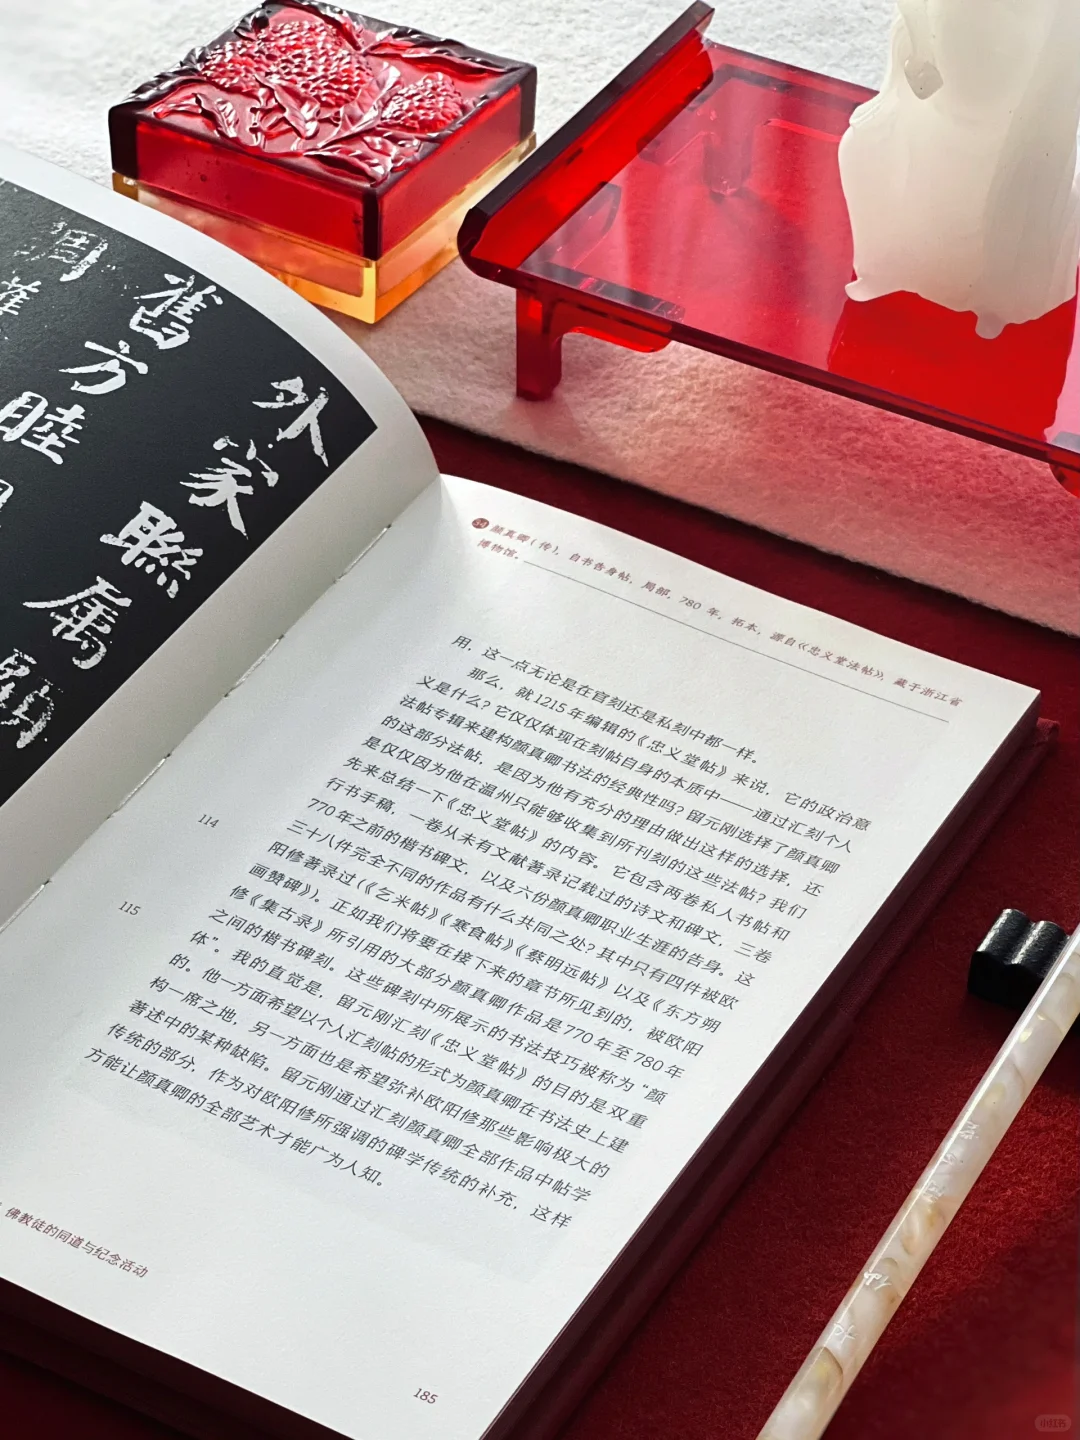 外家聯属
舊方睦
調
顔真卿（传），自书告身帖，局部，780 年，拓本，源自《忠义堂法帖》，藏于浙江省
博物馆。
用，这一点无论是在官刻还是私刻中都一样。
那么，就1215年编辑的《忠义堂帖》来说，它的政治意
义是什么？它仅仅体现在刻帖自身的本质中——通过汇刻个人
法帖专辑来建构颜真卿书法的经典性吗？留元刚选择了颜真卿
的这部分法帖，是因为他有充分的理由做出这样的选择，还
是仅仅因为他在温州只能够收集到所刊刻的这些法帖？我们
先来总结一下《忠义堂帖》的内容。它包含两卷私人书帖和
行书手稿，一卷从未有文献著录记载过的诗文和碑文，三卷
770年之前的楷书碑文，以及六份颜真卿职业生涯的告身。这
三十八件完全不同的作品有什么共同之处？其中只有四件被欧
114
阳修著录过（《乞米帖》《寒食帖》《蔡明远帖》以及《东方朔
画赞碑》）。正如我们将要在接下来的章节所见到的，被欧阳
修《集古录》所引用的大部分颜真卿作品是770年至780年
之间的楷书碑刻。这些碑刻中所展示的书法技巧被称为“颜
115
体”。我的直觉是，留元刚汇刻《忠义堂帖》的目的是双重
的。他一方面希望以个人汇刻帖的形式为颜真卿在书法史上建
构一席之地，另一方面也是希望弥补欧阳修那些影响极大的
著述中的某种缺陷。留元刚通过汇刻颜真卿全部作品中帖学
传统的部分，作为对欧阳修所强调的碑学传统的补充，这样
方能让颜真卿的全部艺术才能广为人知。
佛教徒的同道与纪念活动
185
小红书